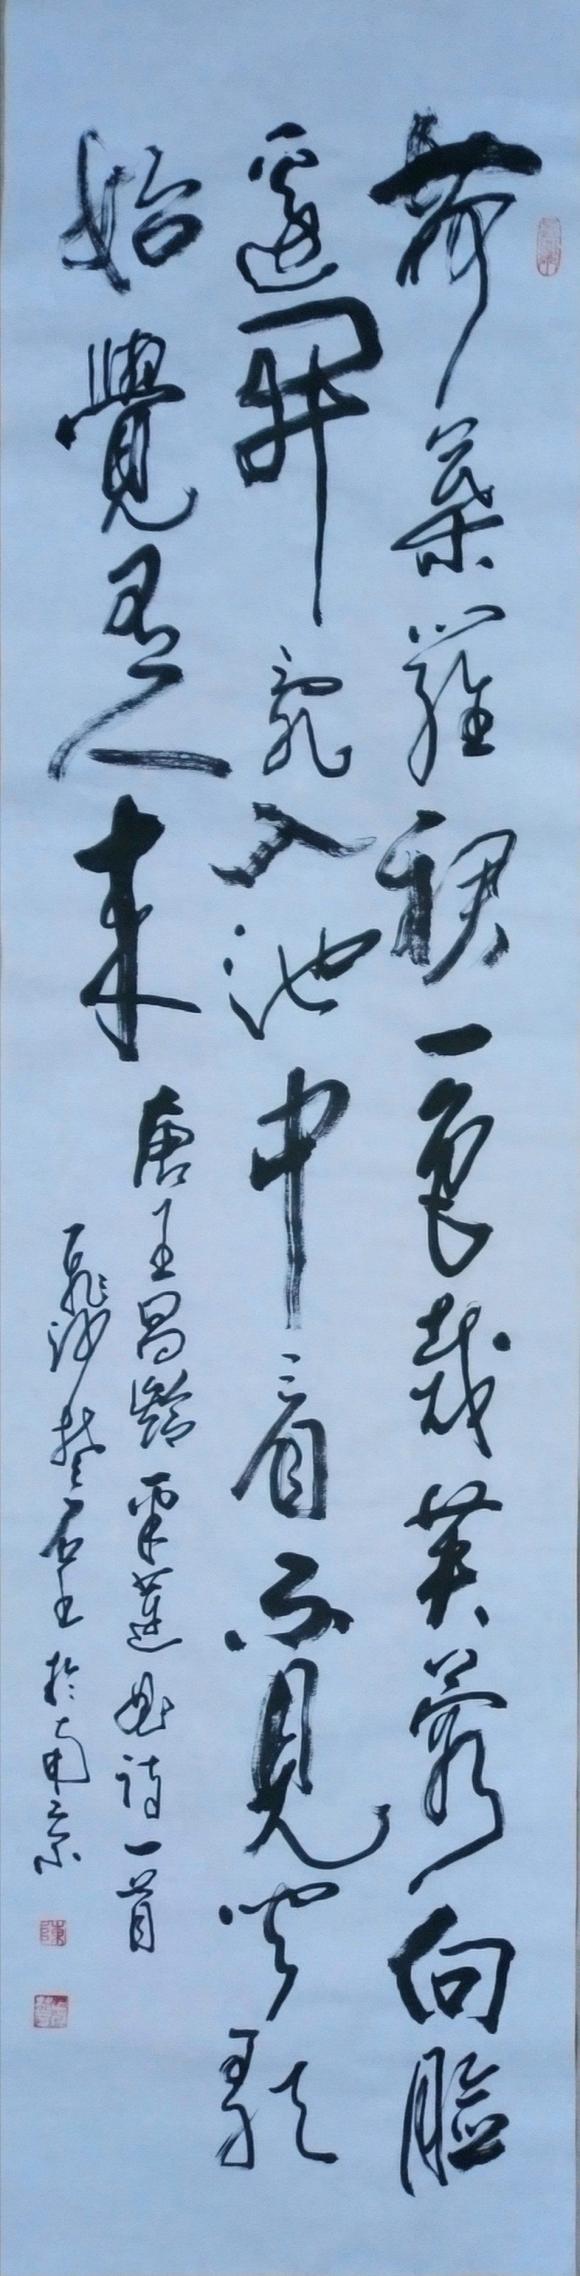 荷葉羅裙一色裁芙蓉向脸
两邊開亂入池中看不見聞歌
始覺有人来
唐王昌齡采蓮曲詩一首
於南京